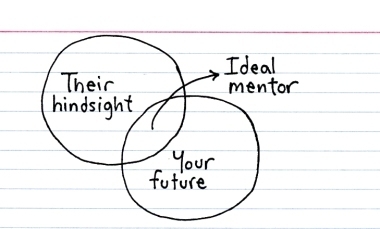 Their
hindsight
Ideal
mentor
Your
future